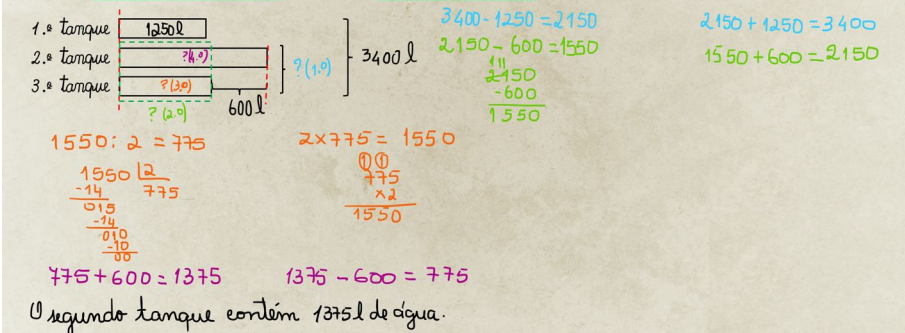 1.º tanque 1250l
2.º tanque ?(4.º)
3.º tanque ?(3.º)
? (2.º) 600l
?(1.º) 3400l
3400-1250=2150 2150+1250=3400
2150-600=1550 1550+600=2150
11
2150
-600
1550
1550:2=775 2×775=1550
1550 2
-14 775
015
-14
010
-10
00
11
775
×2
1550
775+600=1375 1375-600=775
O segundo tanque contém 1375l de água.